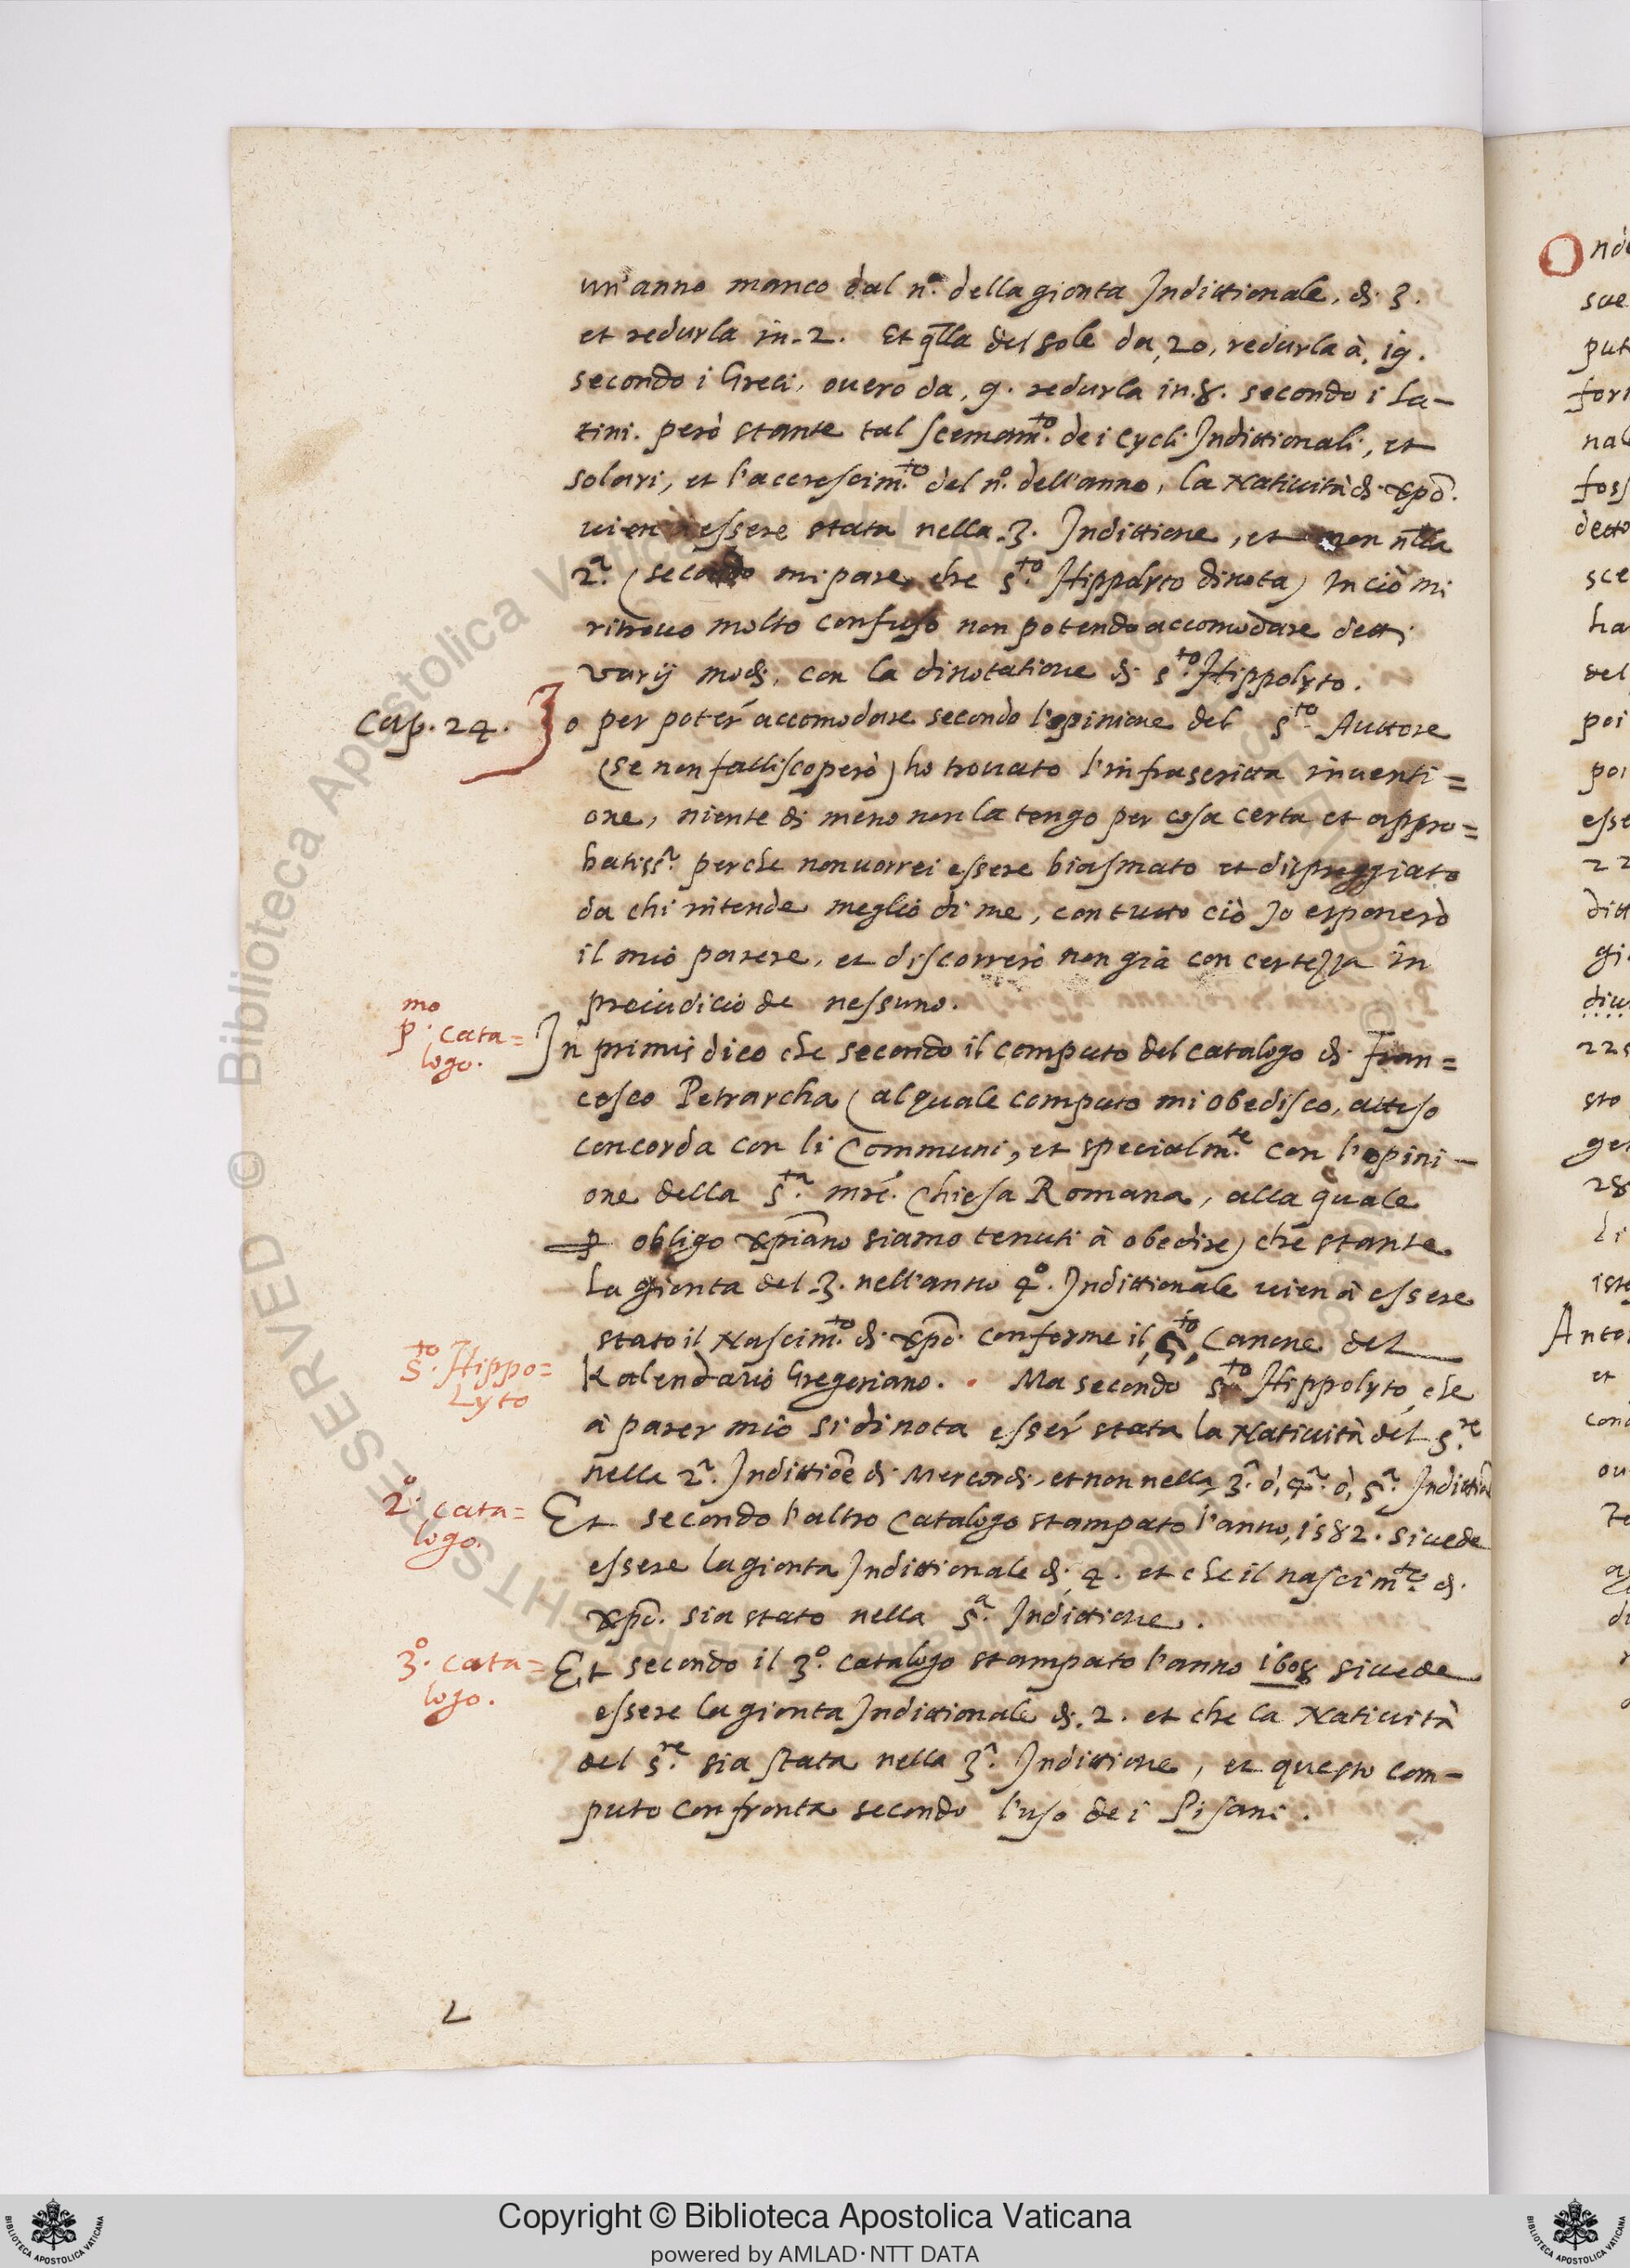 un'anno manco dal n.º della gionta Indittionale, di 3.
et redurla in. 2. Et q̃lla del Sole da, 20, redurla à, 19.
secondo i Greci, ouero da, 9. redurla in. 8. secondo i La-
tini. però stante tal scemam.to dei Cycli Indittionali, et
solari, et l'accrescim.to del n.º dell'anno, la Natiuità di Xp̃o.
uien à essere stata nella. 3. Indittione, et non n̄lla
2.a (secondo mi pare che S.to Hippolyto dinota) In ciò mi
ritrouo molto confuso non potendo accomodare detti
varij modi, con la dinotatione di S.to Hippolyto.
Cap. 24. Io per poter' accomodare secondo l'opinione del S.to Auttore
(se non fallisco però) ho trouato l'infrascritta inuenti=
one, niente di meno non la tengo per cosa certa et appro=
batiss.a perche non uorrei essere biasmato et dispreggiato
da chi intende meglio di me, con tutto ciò Io esponerò
il mio parere, et discorrerò non già con certezza in
preiudicio de nessuno.
p.mo cata=
logo.
In primis dico che secondo il computo del catalogo di Fran=
cesco Petrarcha (al quale computo mi obedisco, atteso
concorda con li Communi, et specialm.te con l'opini-
one della S.ta mr̃e. Chiesa Romana, alla quale
ꝑ obligo xp̃iano siamo tenuti à obedire) che stante
la gionta del. 3. nell'anno 4.º Indittionale uien à essere
stato il Nascim.to di Xp̃o. conforme il, 5,to Canone del
S.to Hippo=
lyto
Kalendario Gregoriano. Ma secondo S.to Hippolyto, che
à parer mio si dinota esser' stata la Natiuità del S.re
nella 2.a Indittiõe di Mercordi, et non nella 3.a ò, 4.a ò, 5.a Indittiõ
2.º cata=
logo.
Et secondo l'altro Catalogo stampato l'anno, 1582. si uede
essere la gionta Indittionale di, 4. et che il nascim.to di
Xp̃o. sia stato nella 5.a Indittione.
3.º cata=
logo.
Et secondo il 3.º catalogo stampato l'anno 1608 si uede
essere la gionta Indittionale di. 2. et che la Natiuità
del S.re sia stata nella 3.a Indittione, et questo com-
puto confronta secondo l'uso dei Pisani.
L
© Biblioteca Apostolica Vaticana
Copyright © Biblioteca Apostolica Vaticana
powered by AMLAD·NTT DATA